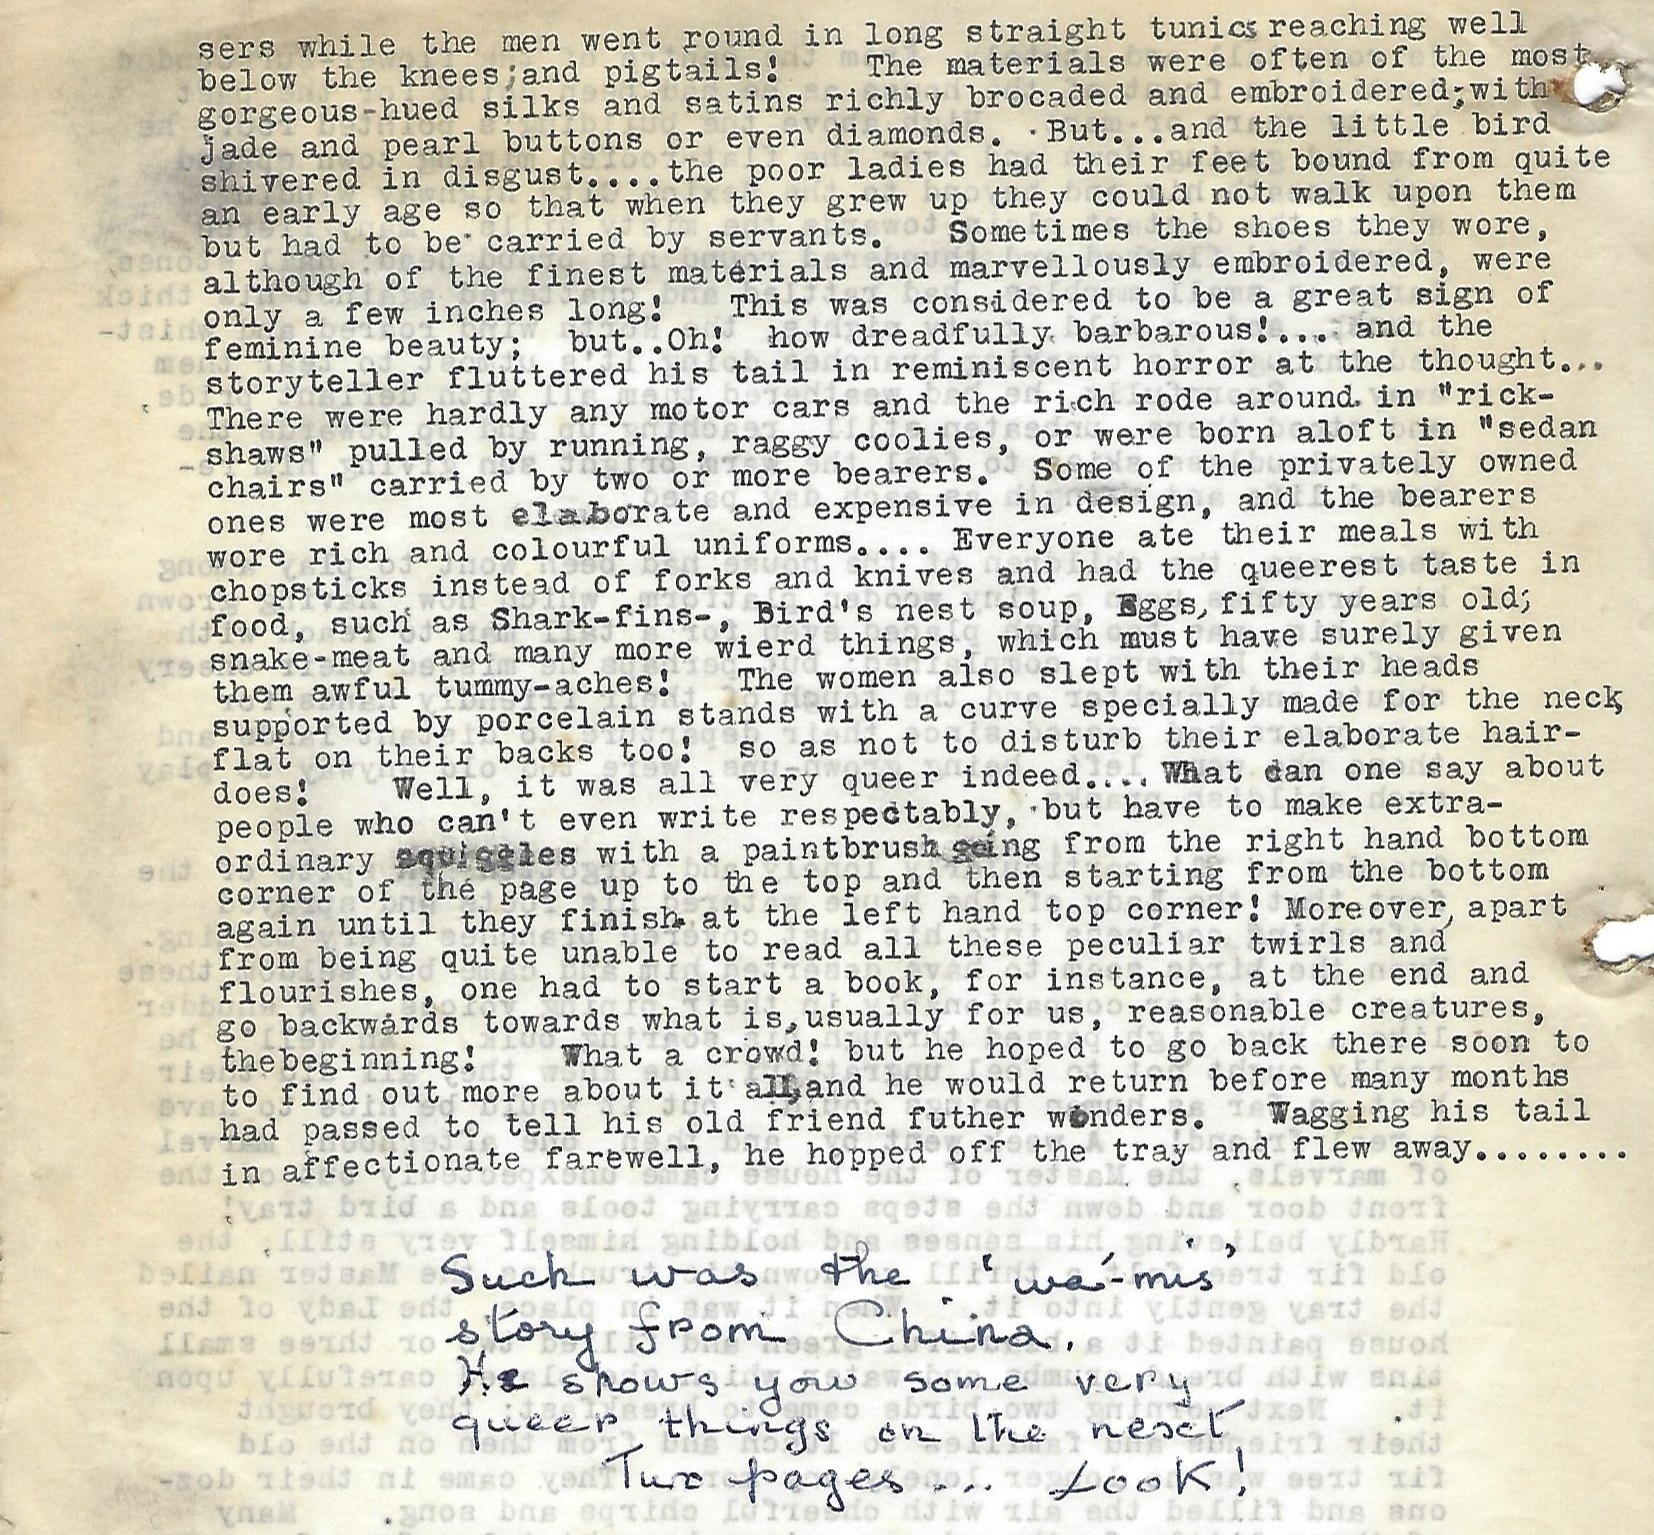 sers while the men went round in long straight tunics reaching well
below the knees;and pigtails!   The materials were often of the most
gorgeous-hued silks and satins richly brocaded and embroidered;with
jade and pearl buttons or even diamonds.  But...and the little bird
shivered in disgust....the poor ladies had their feet bound from quite
an early age so that when they grew up they could not walk upon them
but had to be carried by servants.   Sometimes the shoes they wore,
although of the finest materials and marvellously embroidered, were
only a few inches long!   This was considered to be a great sign of
feminine beauty;  but..Oh!  how dreadfully barbarous!.... and the
storyteller fluttered his tail in reminiscent horror at the thought...
There were hardly any motor cars and the rich rode around in "rick-
shaws" pulled by running, raggy coolies, or were born aloft in "sedan
chairs" carried by two or more bearers.  Some of the privately owned
ones were most elaborate and expensive in design, and the bearers
wore rich and colourful uniforms.... Everyone ate their meals with
chopsticks instead of forks and knives and had the queerest taste in
food, such as Shark-fins-, Bird's nest soup, Eggs, fifty years old;
snake-meat and many more wierd things, which must have surely given
them awful tummy-aches!   The women also slept with their heads
supported by porcelain stands with a curve specially made for the neck,
flat on their backs too!  so as not to disturb their elaborate hair-
does!   Well, it was all very queer indeed.... What can one say about
people who can't even write respectably, but have to make extra-
ordinary squiggles with a paintbrush going from the right hand bottom
corner of the page up to the top and then starting from the bottom
again until they finish at the left hand top corner! Moreover, apart
from being quite unable to read all these peculiar twirls and
flourishes, one had to start a book, for instance, at the end and
go backwards towards what is,usually for us, reasonable creatures,
thebeginning!    What a crowd! but he hoped to go back there soon to
to find out more about it all,and he would return before many months
had passed to tell his old friend futher wonders.   Wagging his tail
in affectionate farewell, he hopped off the tray and flew away........
Such was the 'wa-mis'
story from China.
He shows you some very
queer things on the next
Two pages... LOOK!